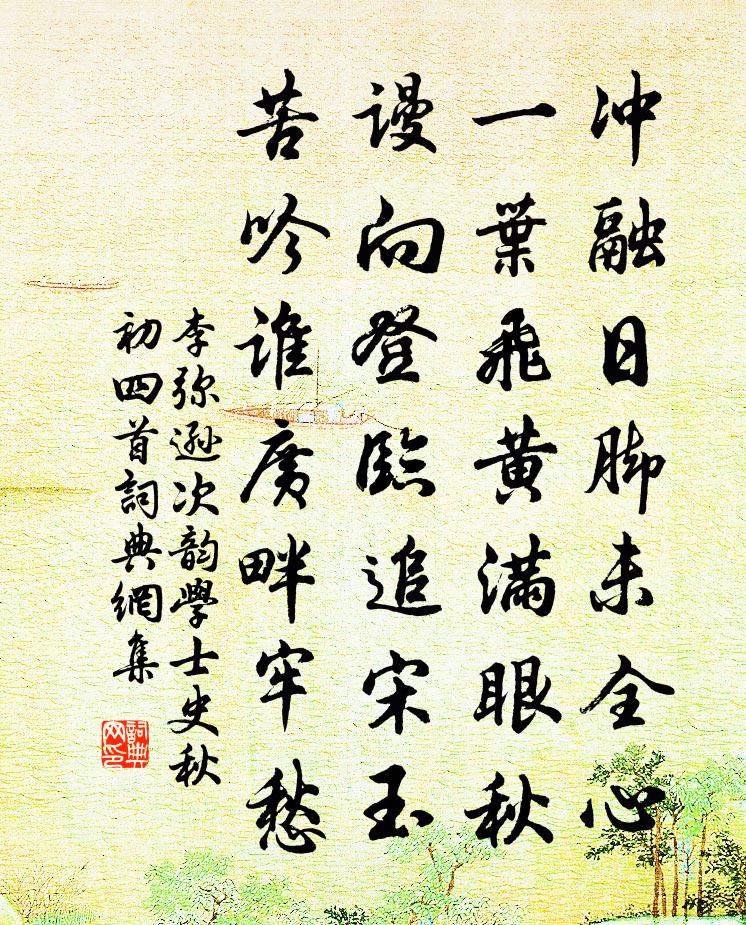 冲融日脚未全心
一葉飛黄滿眼秋
謾向登臨追宋玉
苦吟誰廣畔牢愁
李弥遜次韵學士史秋
初四首詞典網集
詞典
网印